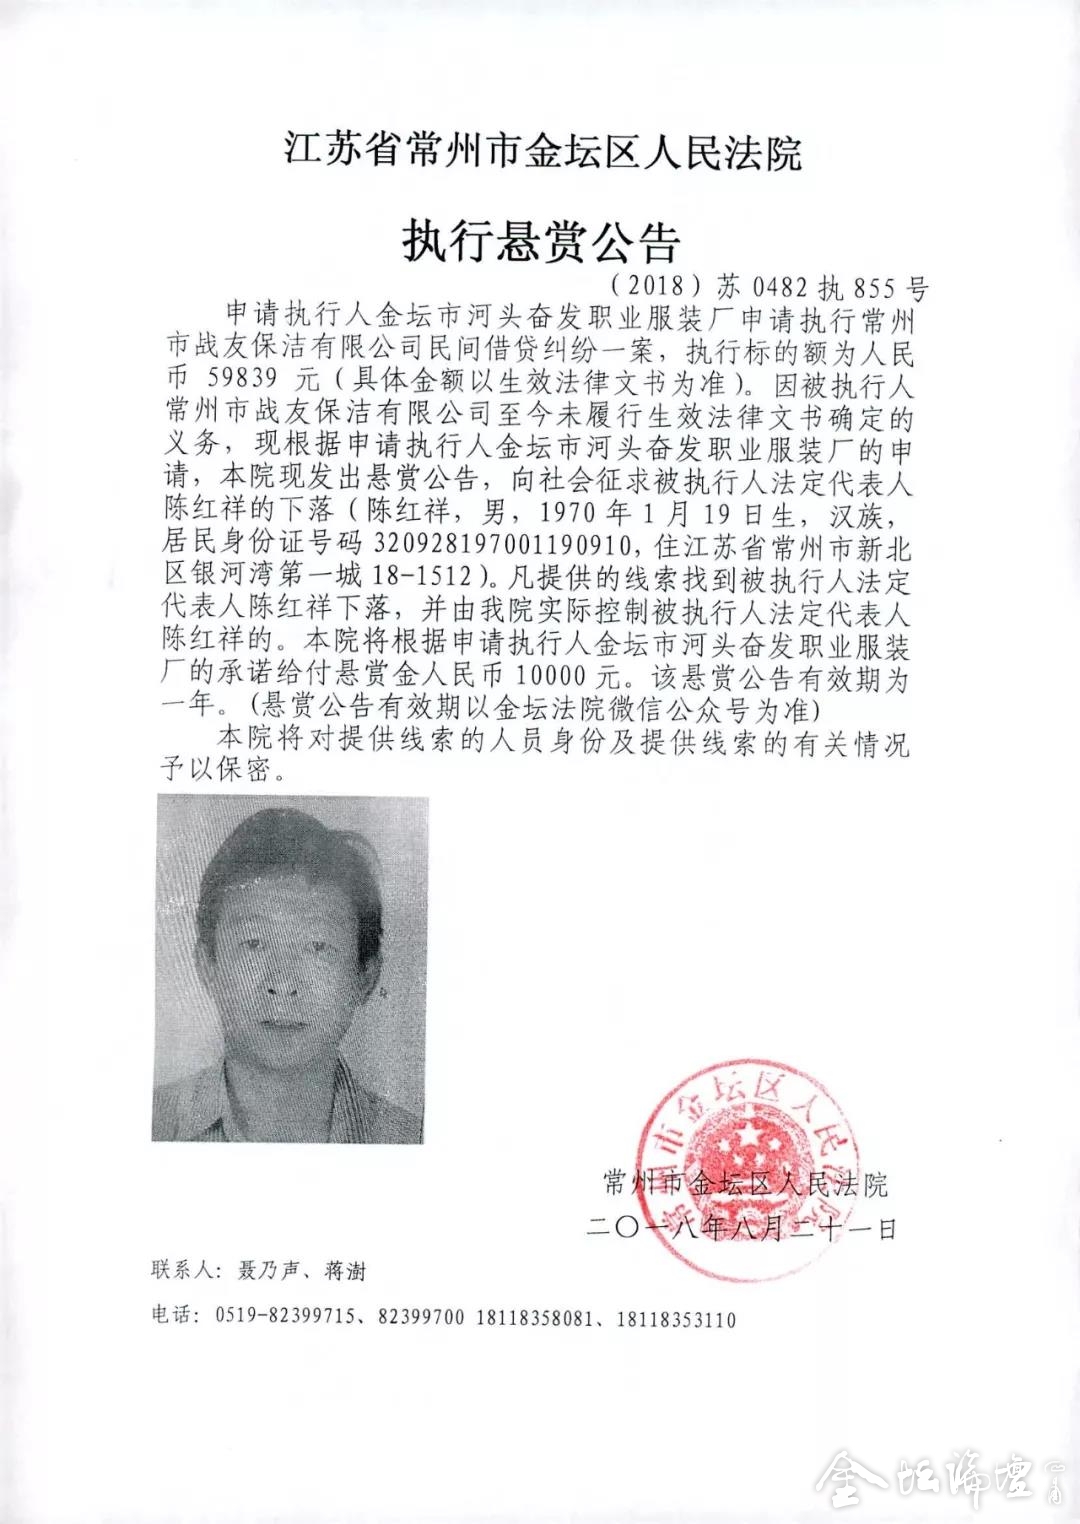 江苏省常州市金坛区人民法院
执行悬赏公告
（2018）苏0482执855号
申请执行人金坛市河头奋发职业服装厂申请执行常州
市战友保洁有限公司民间借贷纠纷一案，执行标的额为人民
币 59839 元（具体金额以生效法律文书为准）。因被执行人
常州市战友保洁有限公司至今未履行生效法律文书确定的
义务，现根据申请执行人金坛市河头奋发职业服装厂的申
请，本院现发出悬赏公告，向社会征求被执行人法定代表人
陈红祥的下落（陈红祥，男，1970年1月19日生，汉族，
居民身份证号码320928197001190910,住江苏省常州市新北
区银河湾第一城18-1512)。凡提供的线索找到被执行人法定
代表人陈红祥下落，并由我院实际控制被执行人法定代表人
陈红祥的。本院将根据申请执行人金坛市河头奋发职业服装
厂的承诺给付悬赏金人民币10000元。该悬赏公告有效期为
一年。(悬赏公告有效期以金坛法院微信公众号为准)
本院将对提供线索的人员身份及提供线索的有关情况
予以保密。
常州市金坛区人民法院
常州市金坛区人民法院
二〇一八年八月二十一日
联系人：聂乃声、蒋澍
电话：0519-82399715、82399700 18118358081、18118353110
金坛论坛